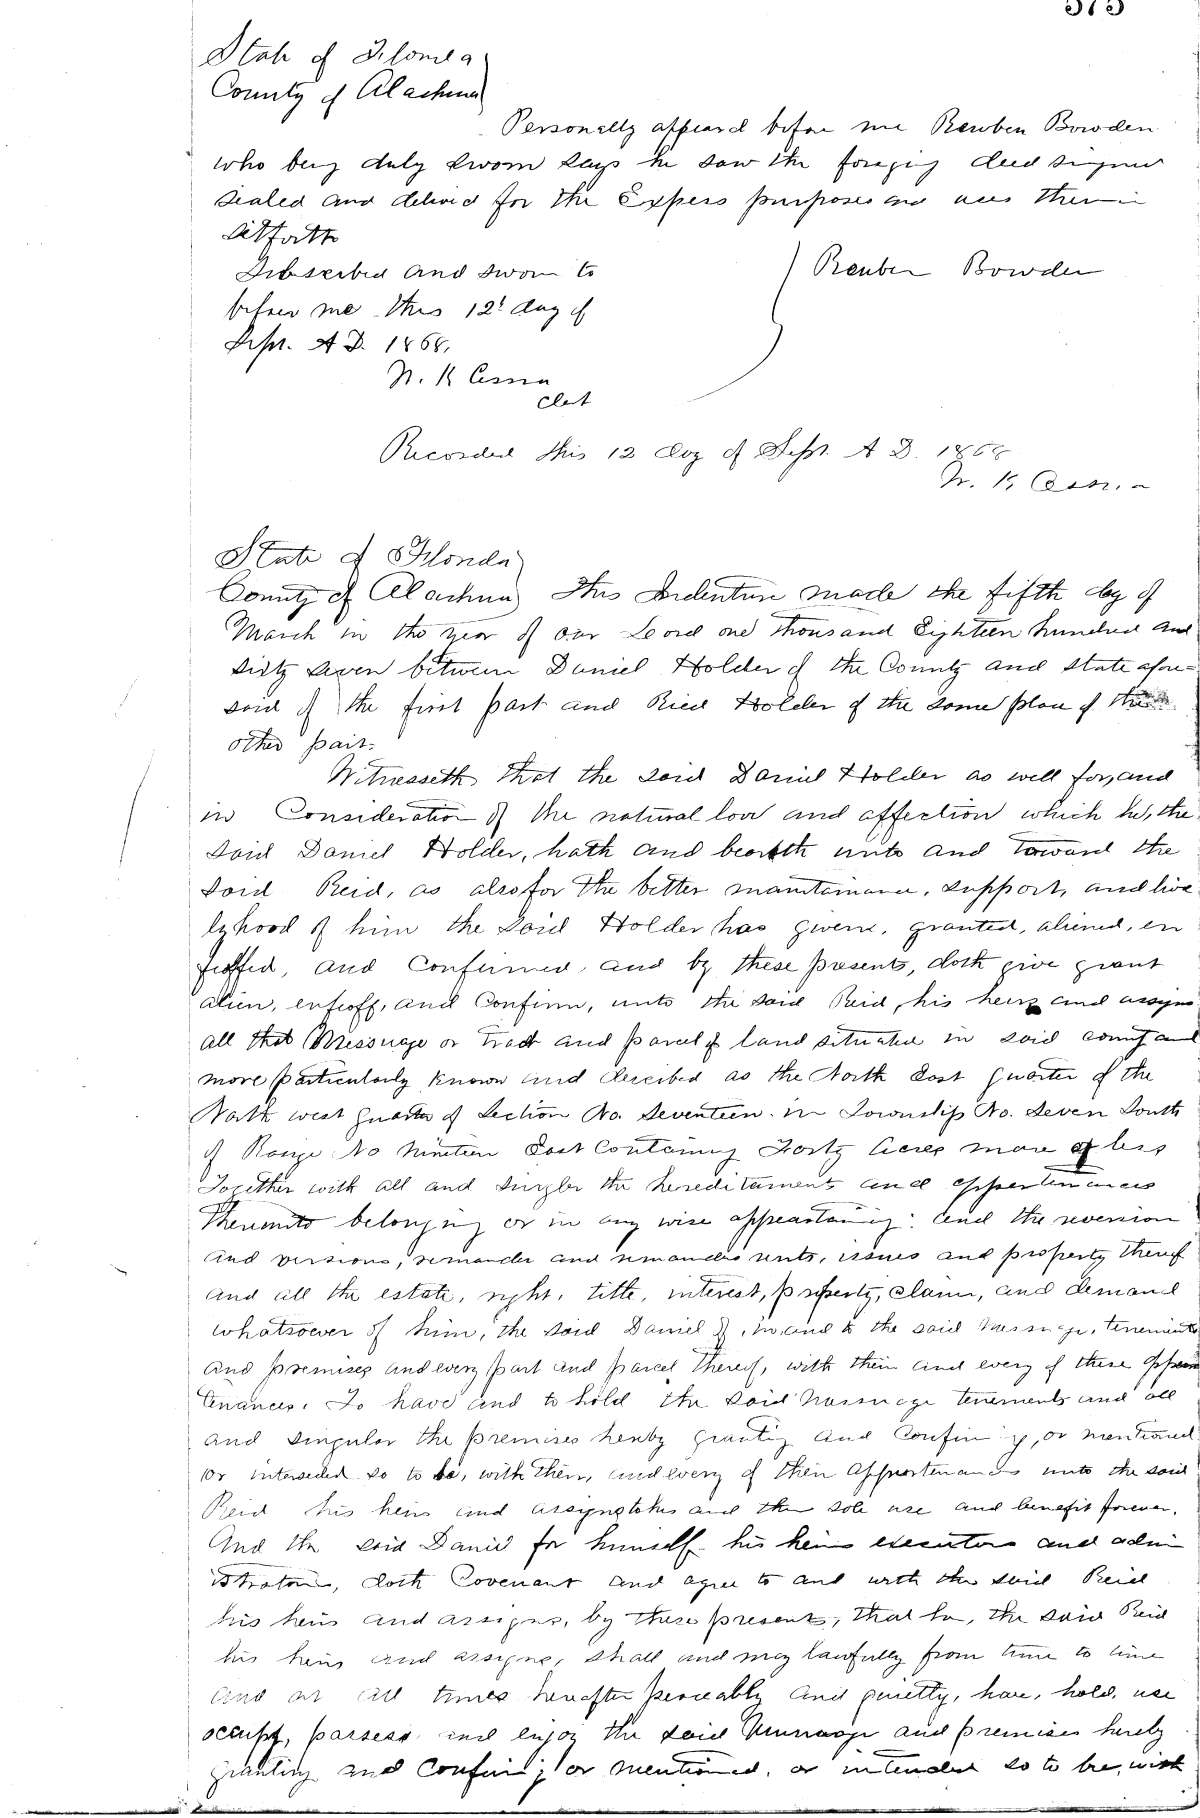 373
State of Florida
County of Alachua
Personally appeard before me Reuben Bowden
who being duly sworn says he saw the foregoing deed signed
sealed and deliverd for the Express purposes and uses therein
Set forth
Subscribed and sworn to
before me this 12t day of
Sept. A D. 1868.
Reuben Bowden
N. K Cessna
Clerk
Recorded this 12 day of Sept. A D. 1868
N. K Cessna
State of Florida
County of Alachua This Indenture made the fifth day of
March in the year of our Lord one thousand Eighteen hundred and
sixty seven between Daniel Holder of the County and state afore=
said of the first part and Ried Holder of the same place of the
other part.
Witnesseth that the said Daniel Holder as well for, and
in Consideration of the natural love and affection which he, the
said Daniel Holder, hath and beareth unto and toward the
said Reid, as also for the better maintainance, support, and live
lyhood of him the said Holder has given, granted, aliened, en
feoffed, and Confirmed, and by these presents, doth give grant
alien, enfeoff, and Confirm, unto the said Reid, his heirs and assigns
all that Messuage or tract and parcel of land situated in said county and
more particularly known and described as the North East quarter of the
North west quarter of Section No. Seventeen in Township No. Seven South
of Range No Nineteen East Containing Forty Acres more or less
Together with all and singler the hereditaments and appertinances
thereunto belonging or in any wise appeartaining: and the reversion
and versions, remander and remanders rents, issues and property thereof
and all the estate, right, title, interest, property, claim, and demand
whatsoever of him, the said Daniel of, in, and to the said messuage, tenements
and premises and every part and parcel thereof, with their and every of these appur
tenances. To have and to hold the said Messuage tenements and all
and singular the premises hereby granting and Confirming, or mentioned
or intended so to be, with their, and every of their appurtenances unto the said
Reid his heirs and assigns to his and their sole use and benefit forever.
And the said Daniel for himself his heirs executors and admin
istrators, doth Covenant and agree to and with the said Reid
his heirs and assigns, by these presents, that he, the said Reid
his heirs and assigns, shall and may lawfully from time to time
and at all times hereafter peaceably and quietly, have, hold, use
occupy, possess and enjoy the said Messuage and premises hereby
granting and Confirming or mentioned, or intended so to be, with